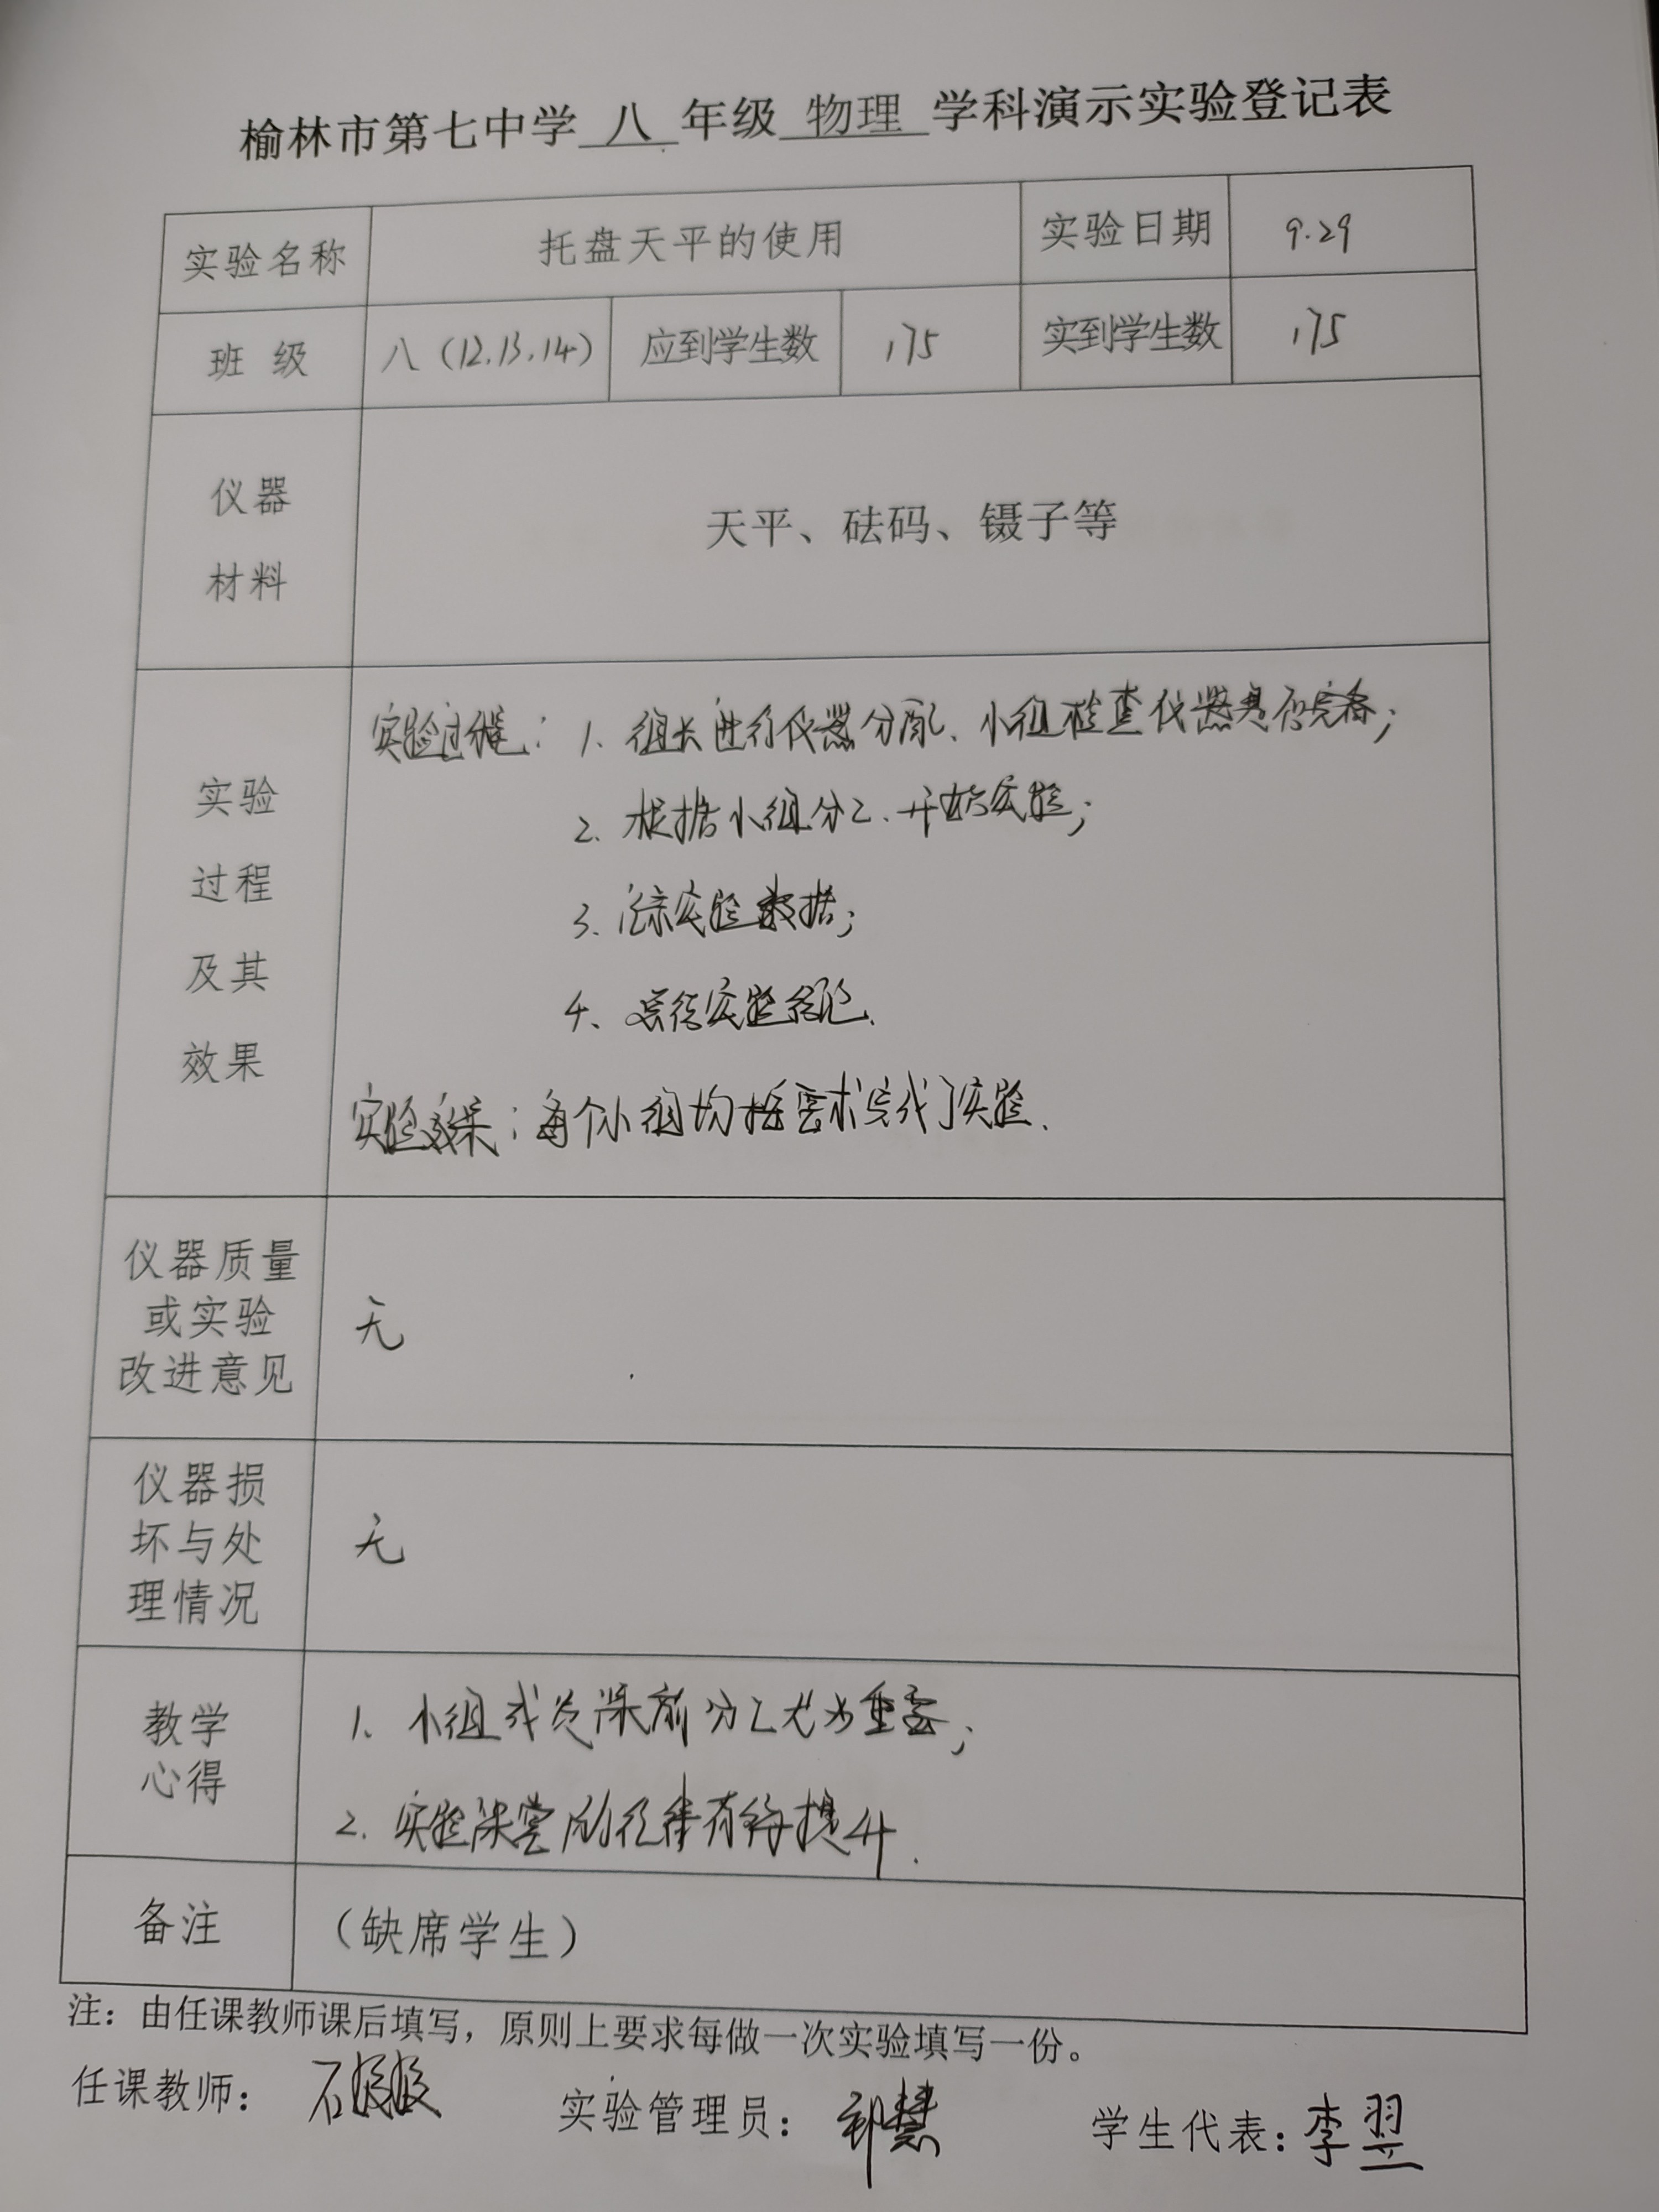 榆林市第七中学 八 年级 物理 学科演示实验登记表
实验名称 托盘天平的使用 实验日期 9.29
班 级 八（12.13.14） 应到学生数 175 实到学生数 175
仪器
材料
天平、砝码、镊子等
实验
过程
及其
效果
实验过程：1、组长进行仪器分配、小组检查仪器是否完备；
2. 根据小组分工、开始实验；
3. 记录实验数据；
4、总结实验结论.
实验效果：每个小组均按要求完成了实验.
仪器质量
或实验
改进意见
无
仪器损
坏与处
理情况
无
教学
心得
1、小组成员课前分工尤为重要；
2. 实验课堂的纪律有待提升.
备注 （缺席学生）
注：由任课教师课后填写，原则上要求每做一次实验填写一份。
任课教师： 石 实验管理员： 慧 学生代表：李翌